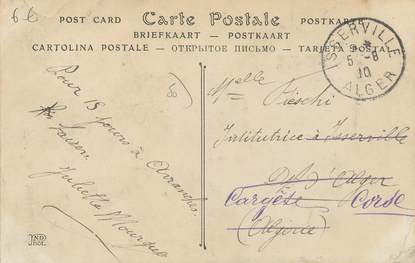 6-6
POST CARD Carte Postale POSTKARTE
BRIEFKAART - POSTKAART
CARTOLINA POSTALE - ОТКРЫТОЕ ПИСЬМО - TARJETA POSTAL
ISSERVILLE
5 -8
10
ALGER
Pour 15 jours à Avranches
Juliette
Melle Pieschi
Institutrice à Isserville
Dpt d'Alger
Cargèse Corse
(Algérie)
ND
Phot.